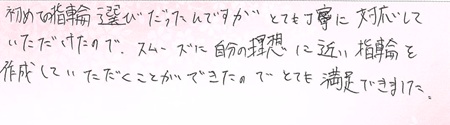 初めての指輪選びだったんですがとても丁寧に対応して
いただけたので、スムーズに自分の理想に近い指輪を
作成していただくことができたのでとても満足できました。